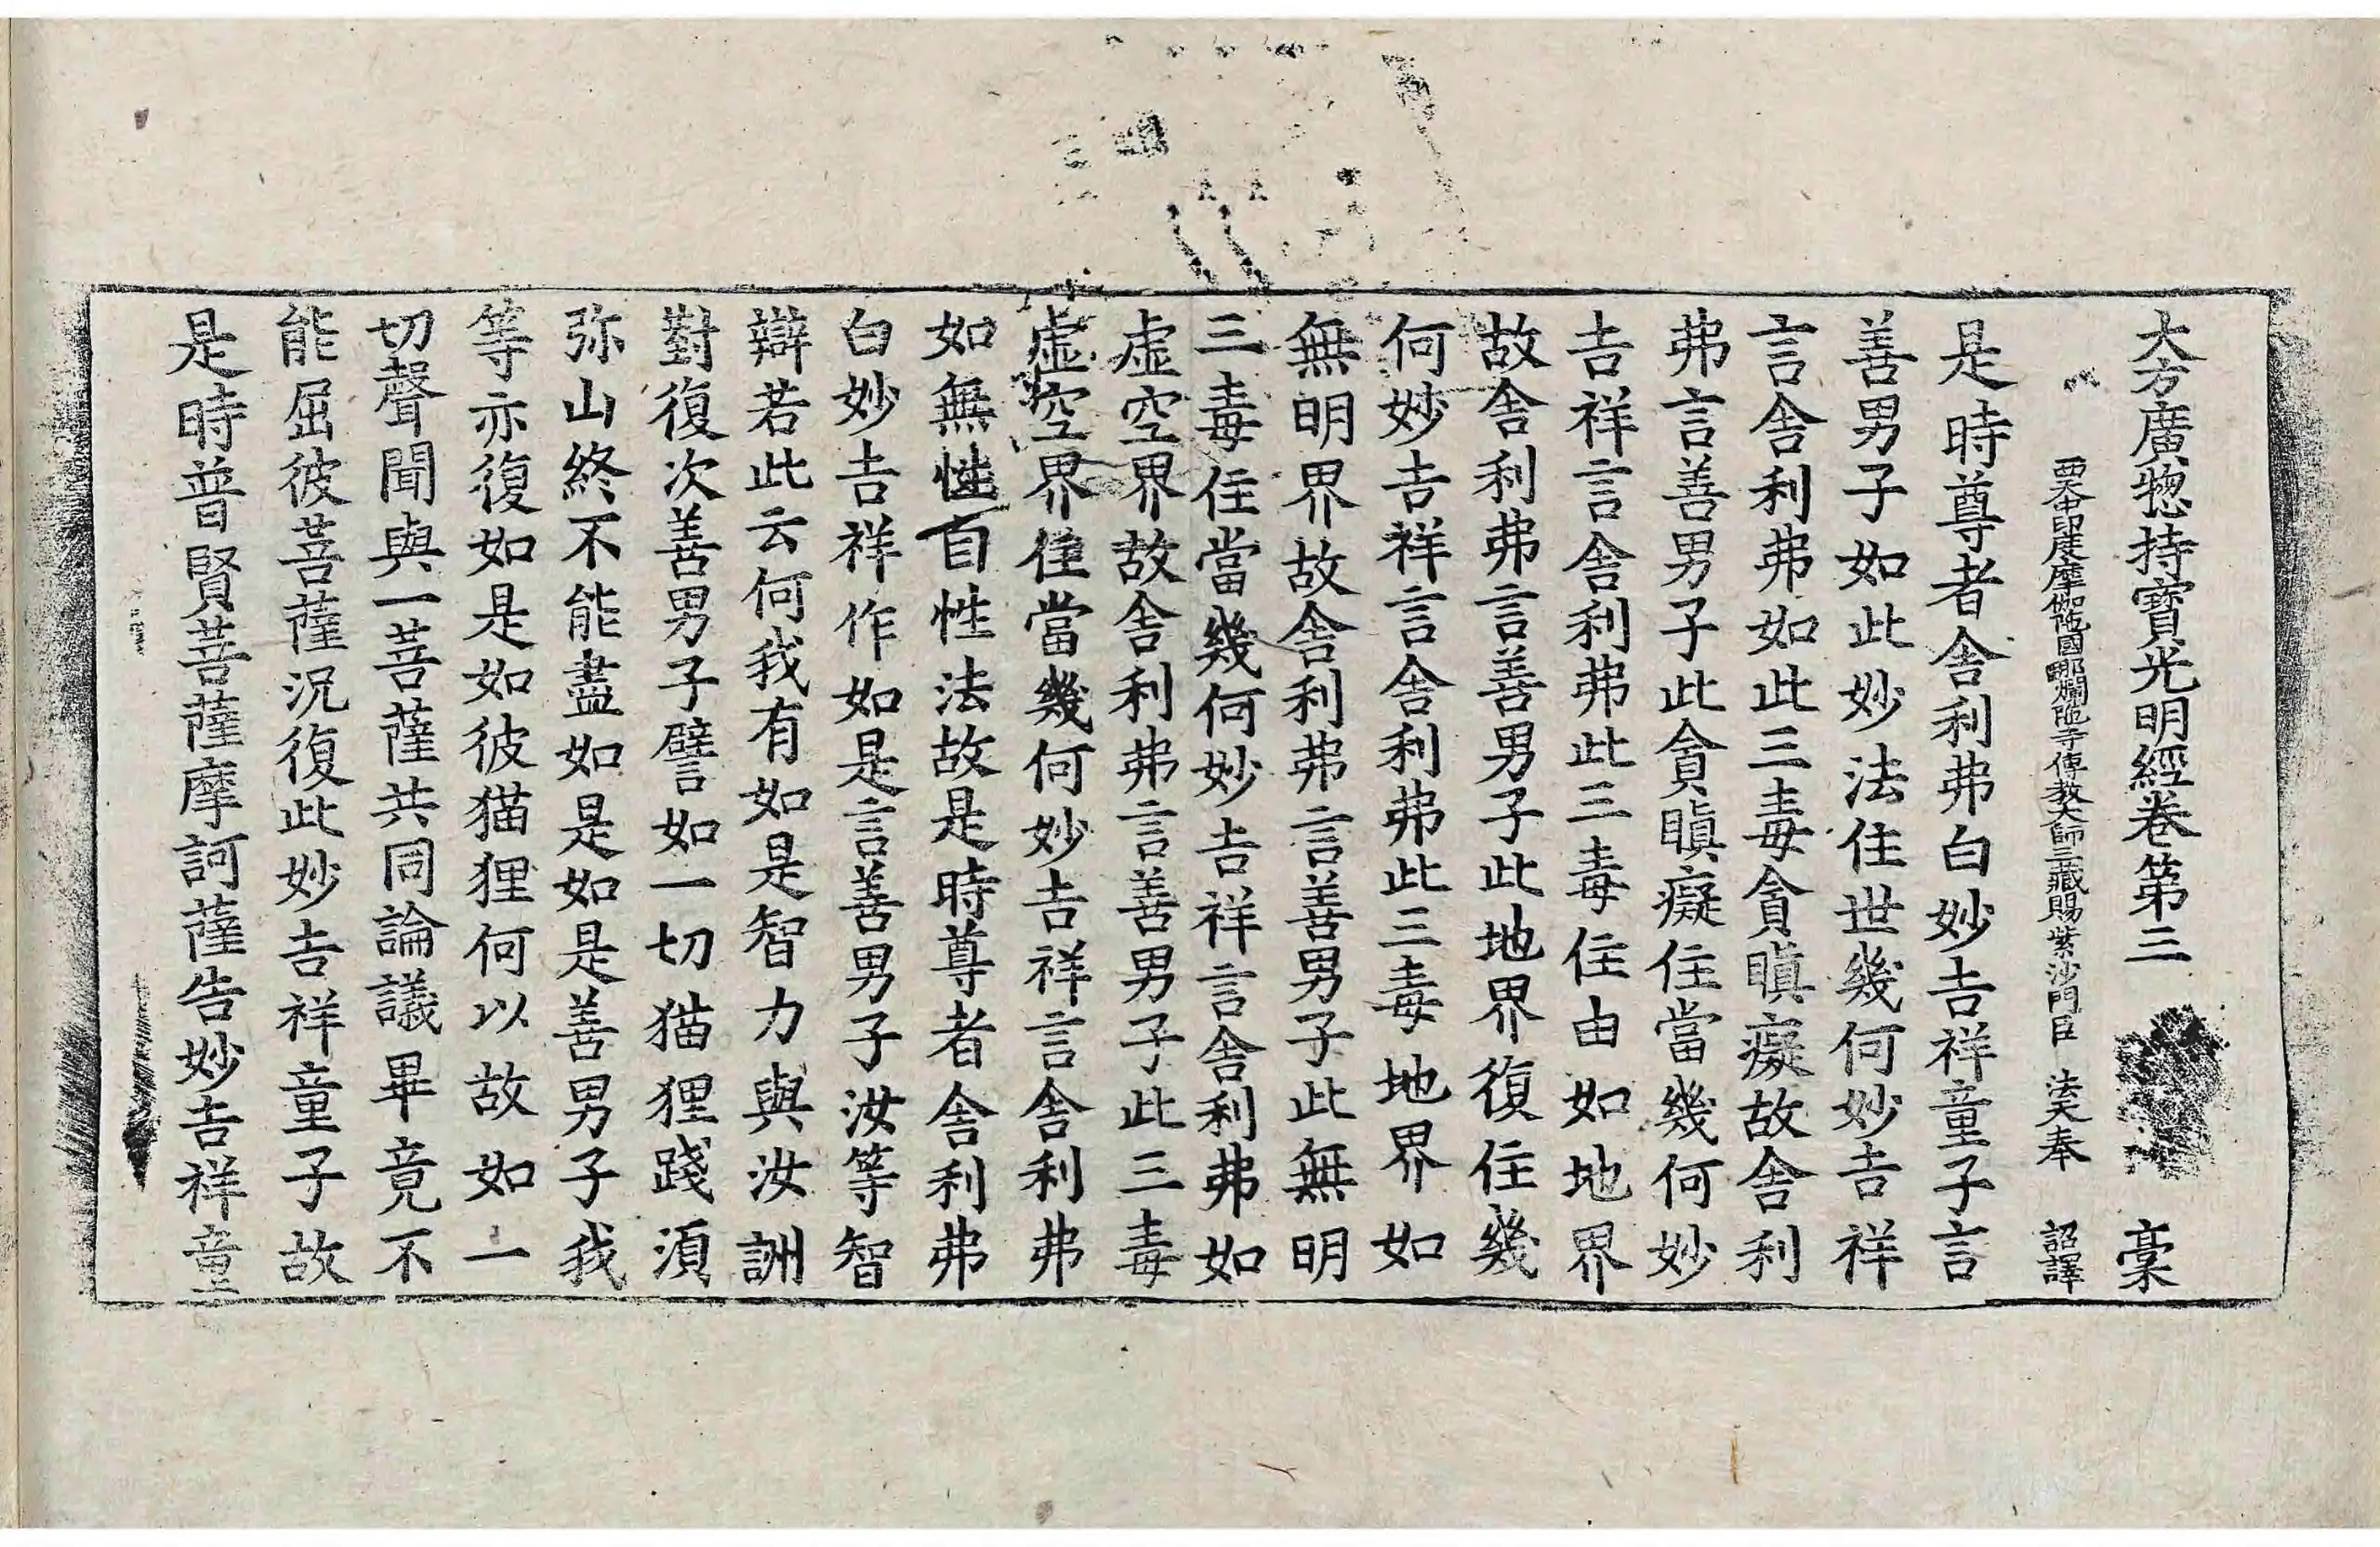 大方廣揔持寶光明經卷第三 槀
西天中印度摩伽陁國那爛陁寺傳教大師三藏賜紫沙門臣 法天奉 詔譯
是時尊者舍利弗白妙吉祥童子言
善男子如此妙法住世幾何妙吉祥
言舍利弗如此三毒貪瞋癡故舍利
弗言善男子此貪瞋癡住當幾何妙
吉祥言舍利弗此三毒住由如地界
故舍利弗言善男子此地界復住幾
何妙吉祥言舍利弗此三毒地界如
無明界故舍利弗言善男子此無明
三毒住當幾何妙吉祥言舍利弗如
虛空界故舍利弗言善男子此三毒
虛空界住當幾何妙吉祥言舍利弗
如無性自性法故是時尊者舍利弗
白妙吉祥作如是言善男子汝等智
辯若此云何我有如是智力與汝詶
對復次善男子譬如一切猫狸踐湏
弥山終不能盡如是如是善男子我
等亦復如是如彼猫狸何以故如一
切聲聞與一菩薩共同論議畢竟不
能屈彼菩薩況復此妙吉祥童子故
是時普賢菩薩摩訶薩告妙吉祥童